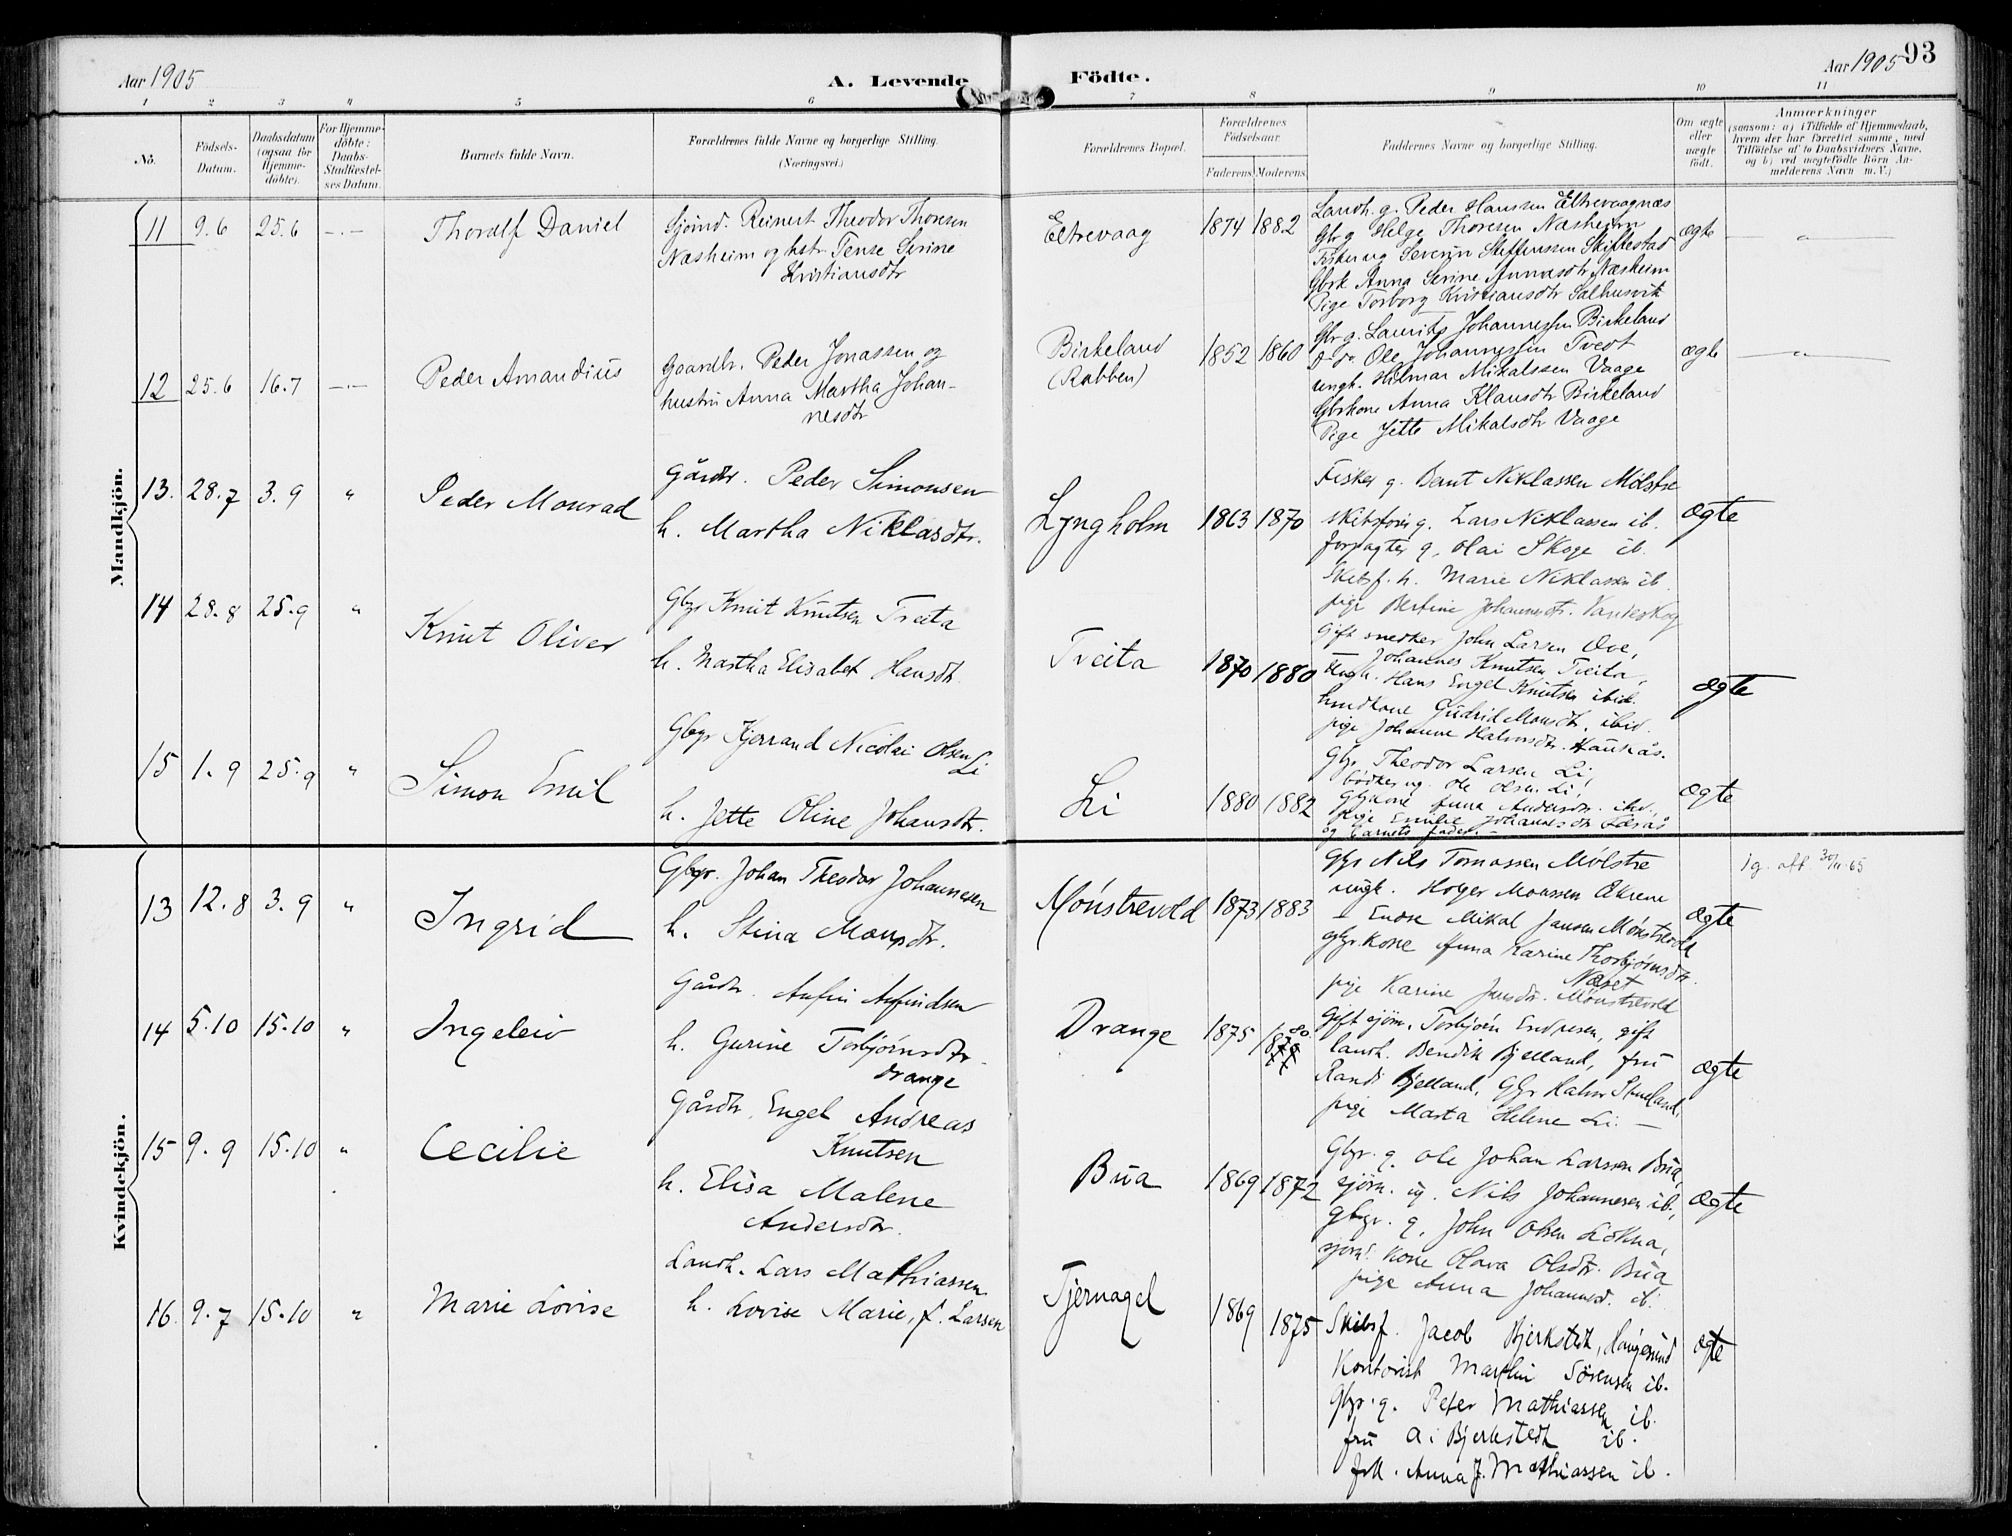 Aar 1905
A. Levende
Födte.
Aar 1905
93
1 2 3 4 5 6 7 8 9 10 11
No.
Födsels-
Datum.
Daabsdatum
(ogsaa for
Hjemme-
döbte).
For Hjemme-
döbte:
Daabs-
Stadfæstel-
ses Datum.
Barnets fulde Navn.
Forældrenes fulde Navne og borgerlige Stilling.
(Næringsvei.)
Forældrenes Bopæl.
Forældrenes
Födselsaar.
Faderens Moderens
Faddernes Navne og borgerlige Stilling.
Om ægte
eller
uægte
födt.
Anmærkninger
(saasom: a) i Tilfælde af Hjemmedaab,
hvem der har forrettet samme, med
Tilföielse af to Daabsvidners Navne,
og b) ved uægtefödte Börn An-
melderens Navn m. V.)
Mandkjön.
11 9.6 25.6 -.- Thoralf Daniel
Sjömd. Reinert Theodor Thoresen
Næsheim og hstr. Tense Serine
Kristiansdtr
Eltrevaag 1874 1882
Landh. g. Peder Hanssen Eltrevaagnæs
Gbr g Helge Thoresen Næsheim
Fisker ug Severin Steffenssen Skiftestad
Gbrk Anna Serine Annasdtr Næsheim
Pige Torborg Kristiansdtr Salhusvik
ægte "
12 25.6 16.7 -.- Peder Amandius
Gaardbr. Peder Jonassen og
hustru Anna Martha Johan-
nesdtr
Birkeland
(Rabben)
1852 1860
Gbr g. Laurits Johannessen Birkeland
D-do Ole Johannessen Tvedt
ungk. Hilmar Mikalssen Vaage
Gbrkone Anna Klausdtr Birkeland
Pige Jette Mikalsdtr Vaage
ægte "
13. 28.7 3.9 " Peder Monrad
Gårdbr. Peder Simonsen
h. Martha Niklasdtr.
Lyngholm 1863 1870
Fisker g. Bent Niklassen Mølstre
skibsfører g. Lars Niklassen ib.
forpagter g. Olai Skoge ib.
Skibsf. h. Marie Niklassen ib
pige Bertine Johannesdtr.
ægte
14 28.8 25.9 " Knut Oliver
Gbr Knut Knutsen Tveita
h. Martha Elisabet Hansdtr.
Tveita 1870 1880
Gift snedker John Larsen Ove,
Johannes Knutsen Tveita,
Ungk. Hans Engel Knutsen ibid.
Gudrid Monsdtr. ibid.
pige Johanne Halvorsdtr.
ægte
15 1.9 25.9 " Simon Emil
Gbgr Kjerrand Nicolai Olsen
Li
h. Jette Oline Johansdtr.
Li 1880 1882
Gbr Theodor Larsen Li,
bødker ug. Ole Olsen Li,
Gbrkone Anna Andersdtr. ibid.
pige Emilie Johannesdtr
og barnets fader. -
ægte
Kvindekjön.
13 12.8 3.9 " Ingrid
Gbgr. Johan Theodor Johannesen
h. Stina Monsdtr.
Mønstrevold 1873 1883
Gbr Nils Tomassen Mølstre
ungk. Holger Monssen Økrene
- Endre Mikal Jansen Mønstrevold
gbr.kone Anna Karine Thorbjørnsdtr.
Næset
pige Karine Jansdtr. Mønstrevold
ægte
1 g. att. 30/11-65
14 5.10 15.10 " Ingeleiv
Gårdbr. Anfin Anfindsen
h. Gurine Torbjørnsdtr.
Drange
Drange 1875 80
Gift sjøm. Torbjørn Endresen, gift
landh. Bendik Bjelland, fru
Randi Bjelland, Gbr Halvor Studland,
pige Marta Helene Li. -
ægte
15 9.9 15.10 " Cecilie
Gårdbr. Engel Andreas
Knutsen
h. Elisa Malene
Andersdtr.
Bua 1869 1872
Gbr. g. Ole Johan Larsen Bua,
sjøm. ug. Nils Johannesen ib.,
Gbgr. g. John Olsen Løkna,
sjøm. kone Olava Olsdtr. Bua
pige Anna Johannesd. ib.
ægte
16. 9.7 15.10 " Marie Lovise
Landh. Lars Mathiassen
h. Lovise Marie, f. Larsen
Tjernagel 1869 1875
Skibsf. Jacob Bjerkstedt, Haugesund
Kontorist Martin Sörensen ib.
Gbr. g. Peter Mathiassen ib.
fru A. Bjerkstedt ib.
frk. Anna J. Mathiassen ib.
ægte